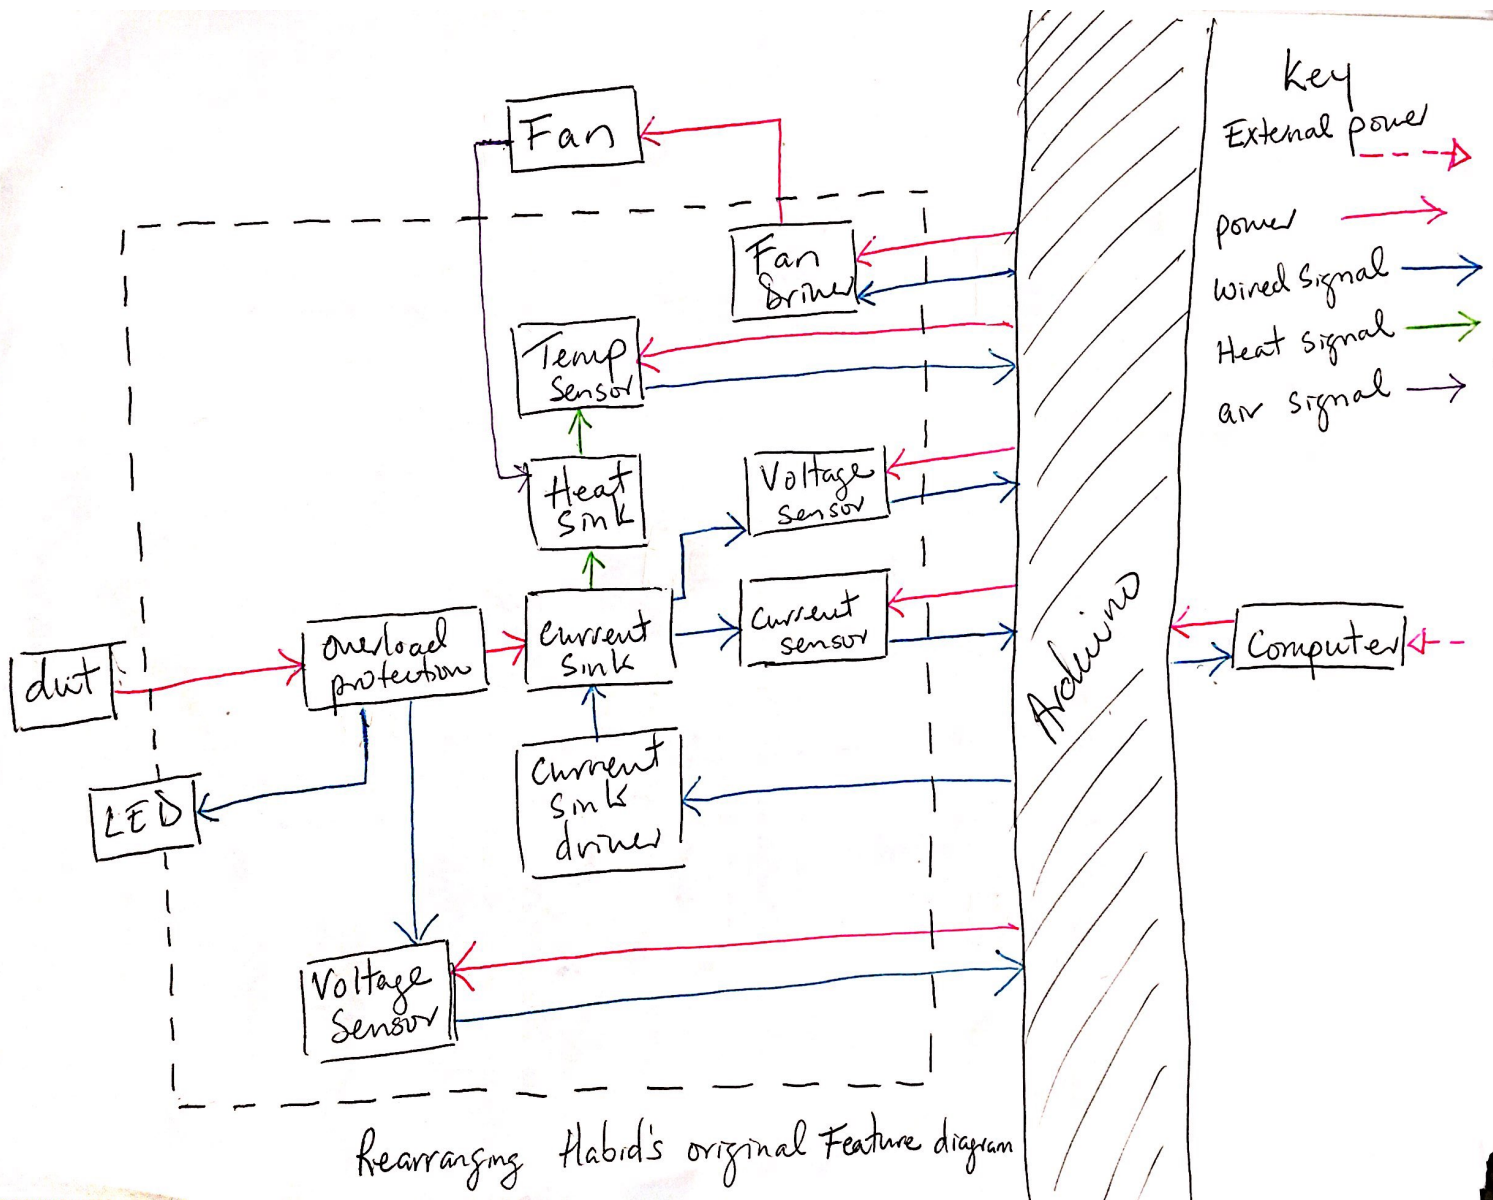 Key
External power
power
Wired Signal
Heat Signal
air signal
Fan
Fan
Driver
Temp
Sensor
Heat
Sink
Voltage
sensor
Current
sensor
Current
Sink
Overload
protection
dut
LED
Current
Sink
driver
Voltage
Sensor
Arduino
Computer
Rearranging Habid's original Feature diagram